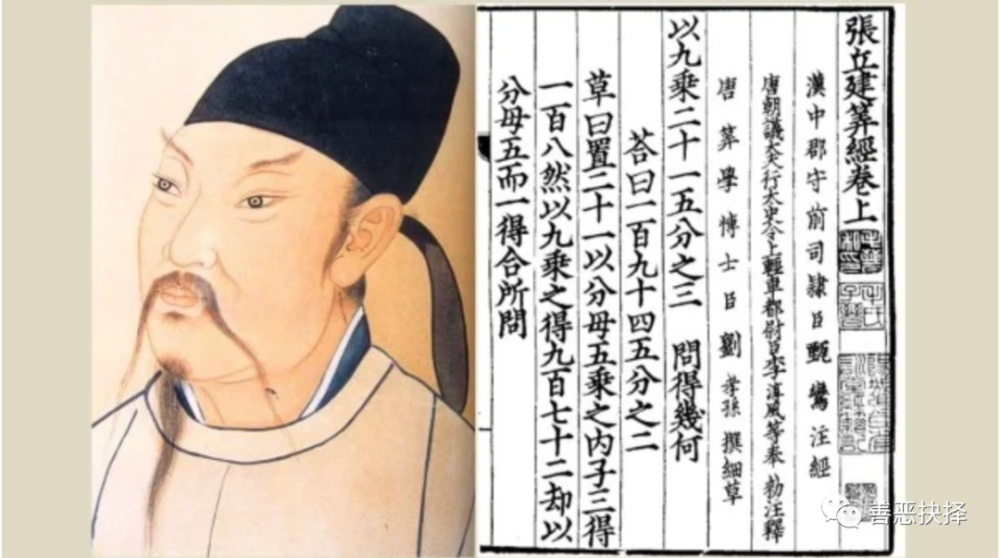 張丘建筭經卷上
漢中郡守前司隸臣甄鸞注經
唐朝議大夫行太史令上輕車都尉臣李淳風等奉 勑注釋
唐筭學博士臣劉孝孫撰細草
以九乘二十一五分之三 問得幾何
荅曰一百九十四五分之二
草曰置二十一以分母五乘之内子三得
一百八然以九乘之得九百七十二却以
分母五而一得合所問
善恶抉择